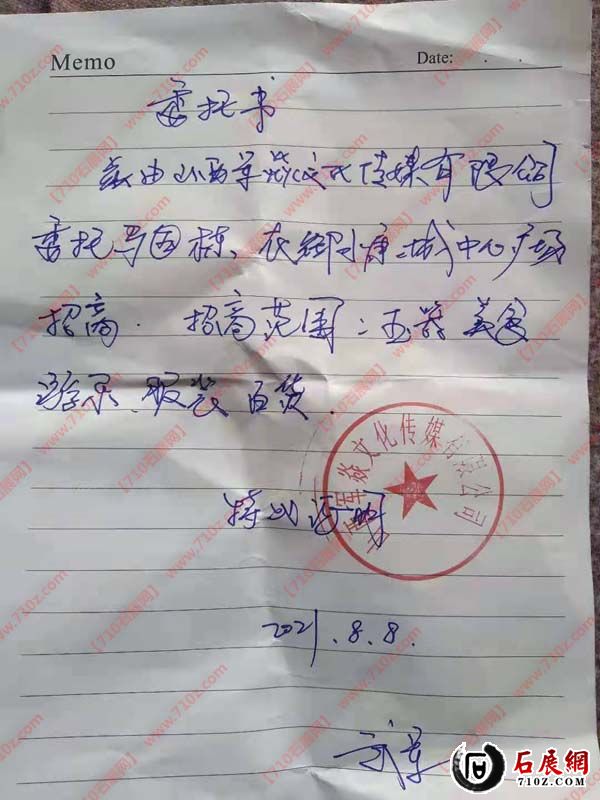 Memo Date: . .
委托书
兹由山西军焱文化传媒有限公司
委托马国栋、在御康城中心广场
招商. 招商范围: 玉器 美食
游乐、服装 百货.
军焱文化传媒有限公司
特此证明
2021.8.8.
石展網
710z.COM
【710石展网】www.710z.com